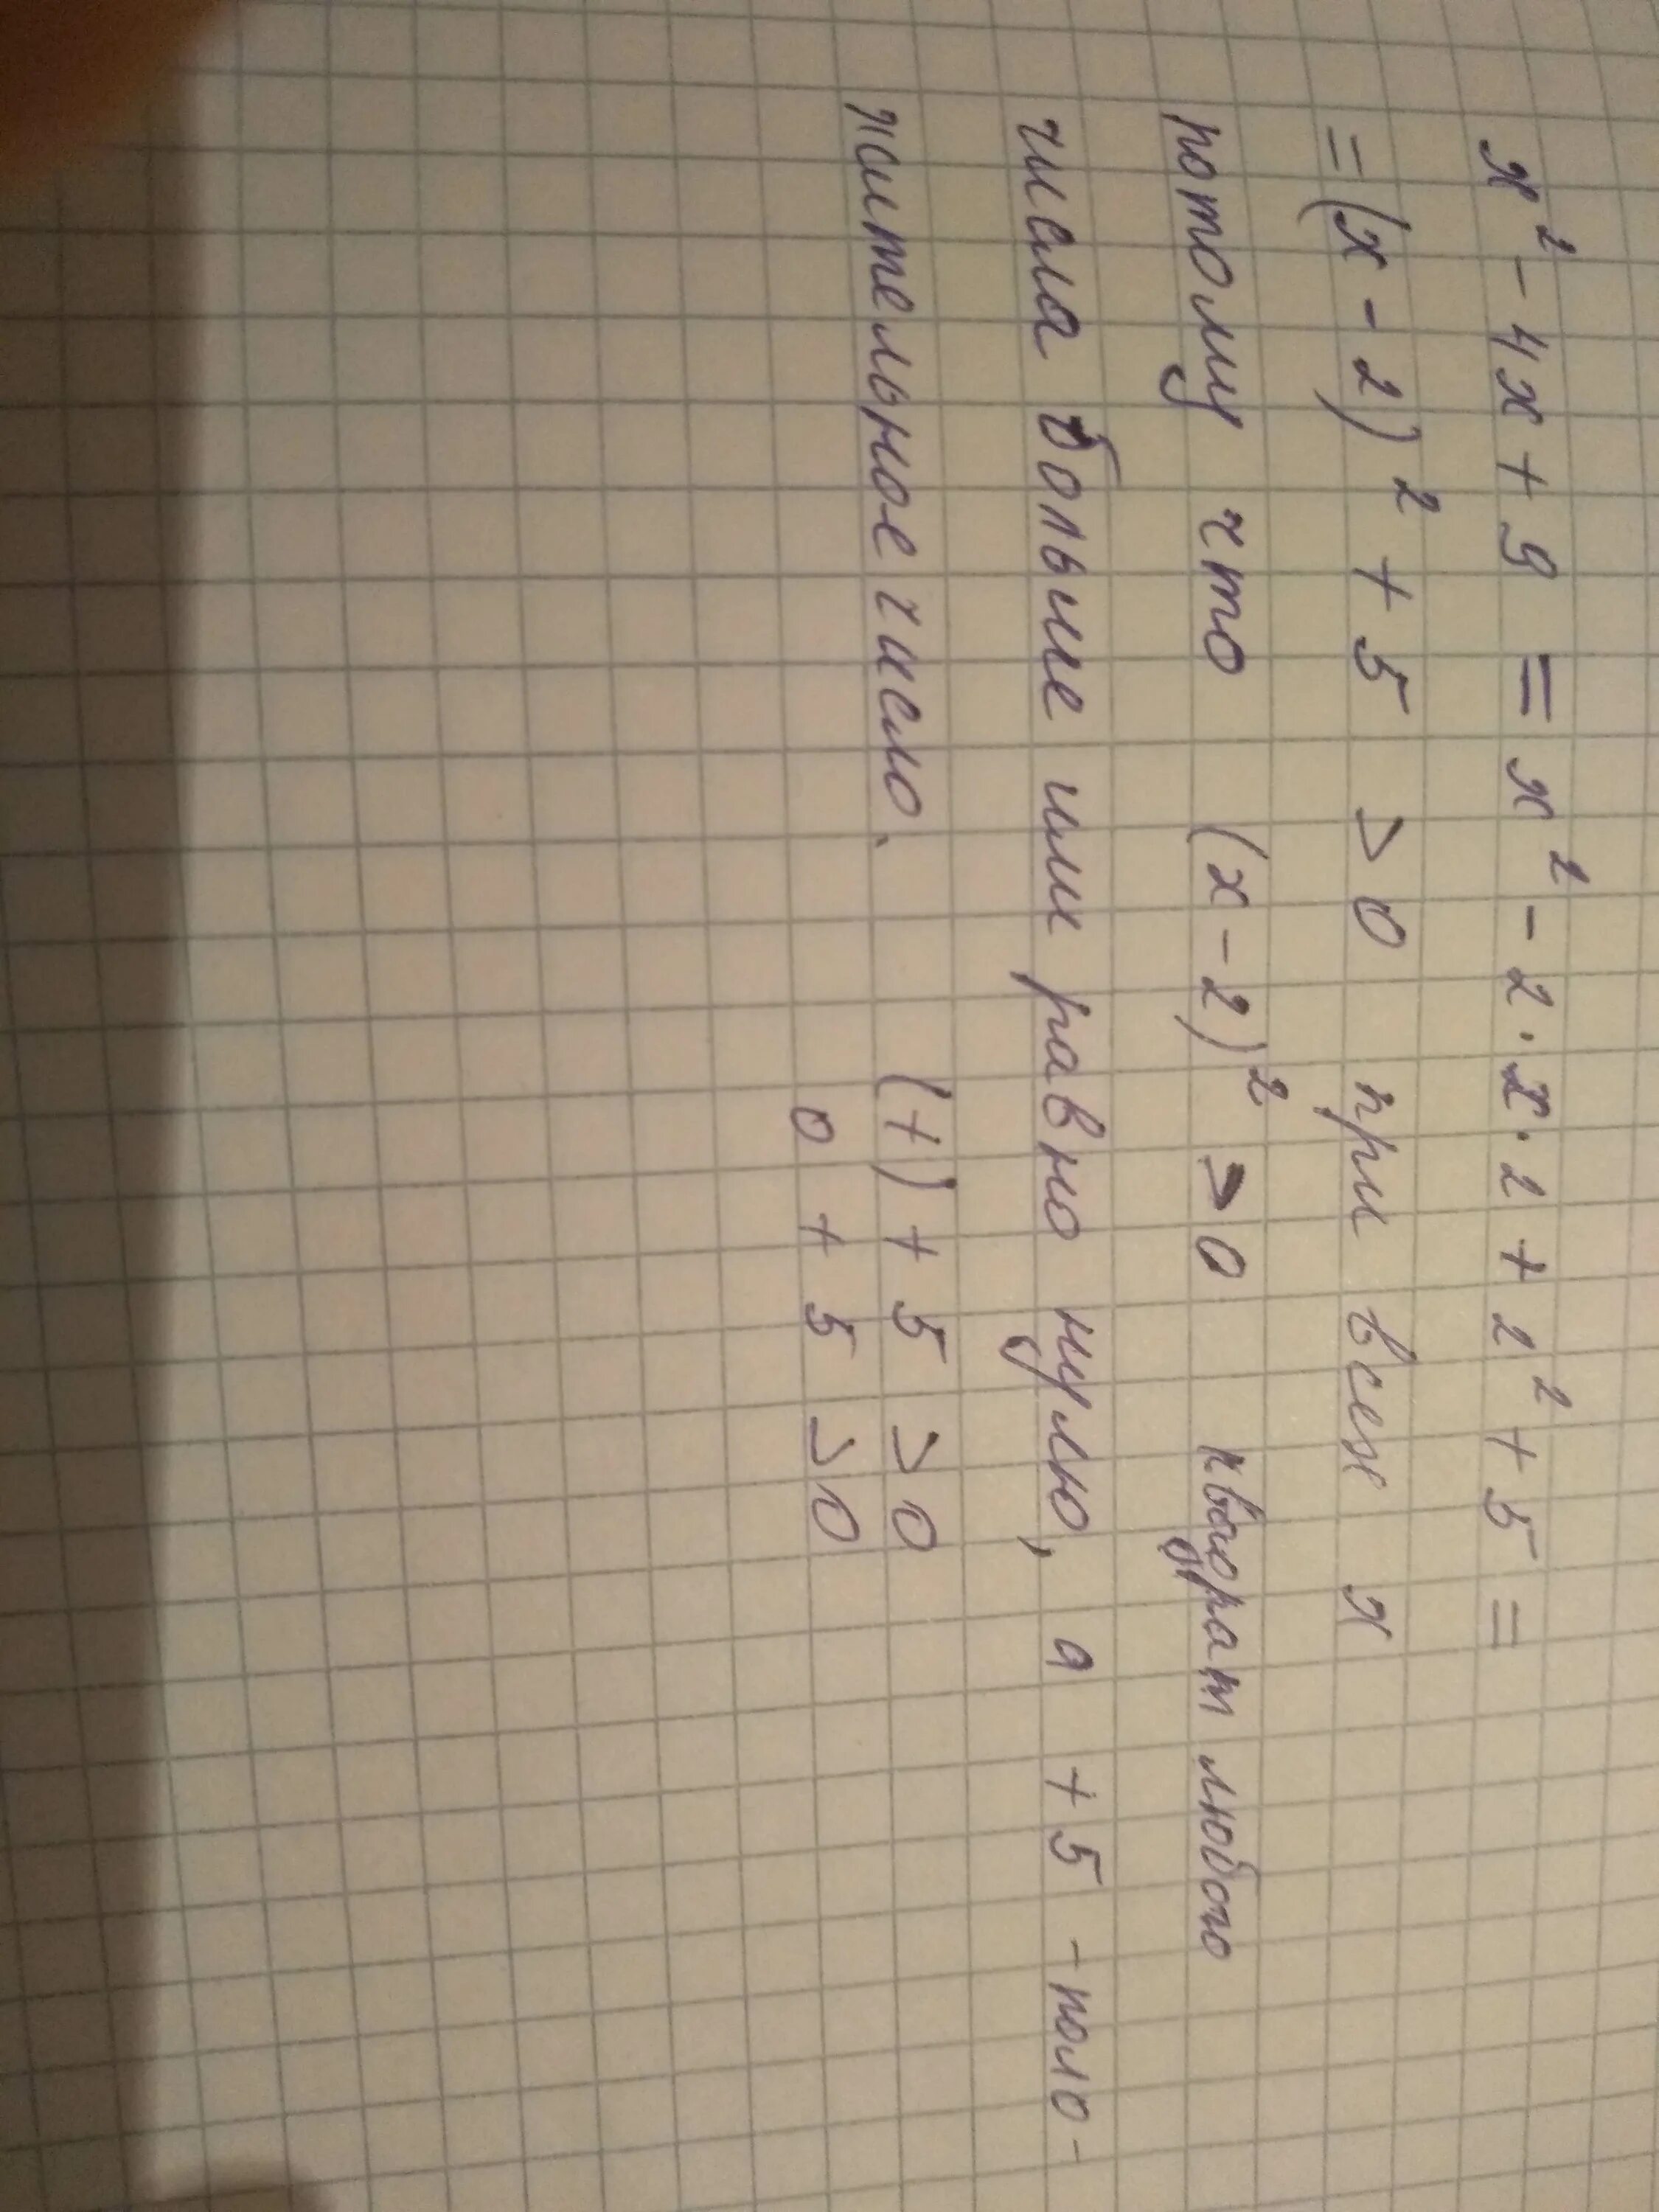 x² - 4x + 9 = x² - 2·x·2 + 2² + 5 =
= (x - 2)² + 5 > 0 при всех x
потому что (x - 2)² ⩾ 0 квадрат любого
числа больше или равно нулю, а + 5 - поло-
жительное число.
(+) + 5 > 0
0 + 5 > 0